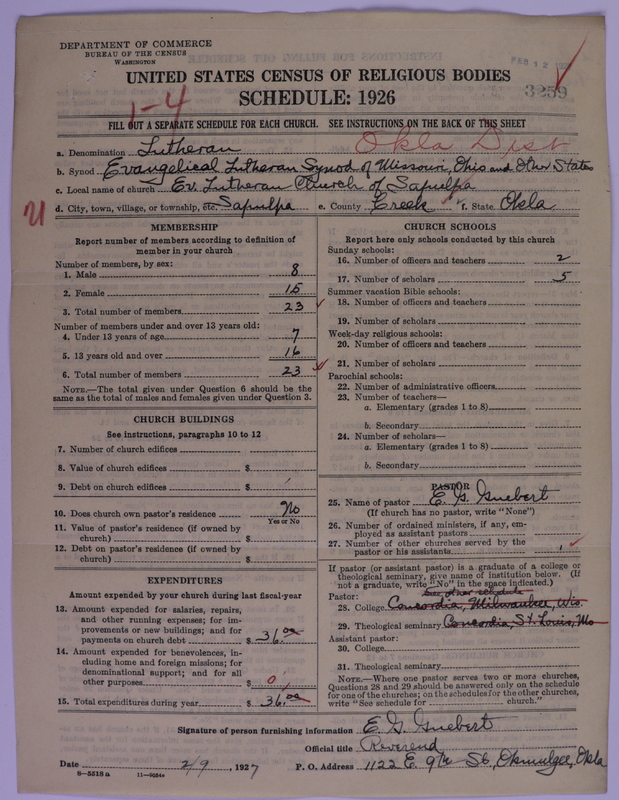 DEPARTMENT OF COMMERCE
BUREAU OF THE CENSUS
WASHINGTON
FEB 12
UNITED STATES CENSUS OF RELIGIOUS BODIES
3259
SCHEDULE: 1926
1-4
FILL OUT A SEPARATE SCHEDULE FOR EACH CHURCH. SEE INSTRUCTIONS ON THE BACK OF THIS SHEET
Okla Dist
a. Denomination Lutheran
b. Synod Evangelical Lutheran Synod of Missouri, Ohio and Other States
c. Local name of church Ev. Lutheran Church of Sapulpa
d. City, town, village, or township, etc. Sapulpa e. County Creek f. State Okla
MEMBERSHIP
Report number of members according to definition of
member in your church
Number of members, by sex:
1. Male 8
2. Female 15
3. Total number of members 23
Number of members under and over 13 years old:
4. Under 13 years of age 7
5. 13 years old and over 16
6. Total number of members 23
NOTE.—The total given under Question 6 should be the
same as the total of males and females given under Question 3.
CHURCH BUILDINGS
See instructions, paragraphs 10 to 12
7. Number of church edifices
8. Value of church edifices $
9. Debt on church edifices $
10. Does church own pastor's residence No
Yes or No
11. Value of pastor's residence (if owned by
church) $
12. Debt on pastor's residence (if owned by
church) $
EXPENDITURES
Amount expended by your church during last fiscal year
13. Amount expended for salaries, repairs,
and other running expenses; for im-
provements or new buildings; and for
payments on church debt $ 36.00
14. Amount expended for benevolences, in-
cluding home and foreign missions; for
denominational support; and for all
other purposes $ 0
15. Total expenditures during year $ 36.00
CHURCH SCHOOLS
Report here only schools conducted by this church
Sunday schools:
16. Number of officers and teachers 2
17. Number of scholars 5
Summer vacation Bible schools:
18. Number of officers and teachers
19. Number of scholars
Week-day religious schools:
20. Number of officers and teachers
21. Number of scholars
Parochial schools:
22. Number of administrative officers
23. Number of teachers—
a. Elementary (grades 1 to 8)
b. Secondary
24. Number of scholars—
a. Elementary (grades 1 to 8)
b. Secondary
PASTOR
25. Name of pastor E. G. Guebert
(If church has no pastor, write "None")
26. Number of ordained ministers, if any, em-
ployed as assistant pastors
27. Number of other churches served by the
pastor or his assistants 1
If pastor (or assistant pastor) is a graduate of a college or
theological seminary, give name of institution below. (If
not a graduate, write "No" in the space indicated.)
See other schedule
Pastor:
28. College Concordia, Milwaukee, Wis.
29. Theological seminary Concordia, St. Louis, Mo
Assistant pastor:
30. College
31. Theological seminary
NOTE.—Where one pastor serves two or more churches,
Questions 28 and 29 should be answered only on the schedule
for one of the churches; on the schedules for the other churches,
write "See schedule for church."
Signature of person furnishing information E. G. Guebert
Official title Reverend
Date 2/9, 1927 P. O. Address 1122 E. 9th St, Okmulgee, Okla
8-5518a 11-9034a